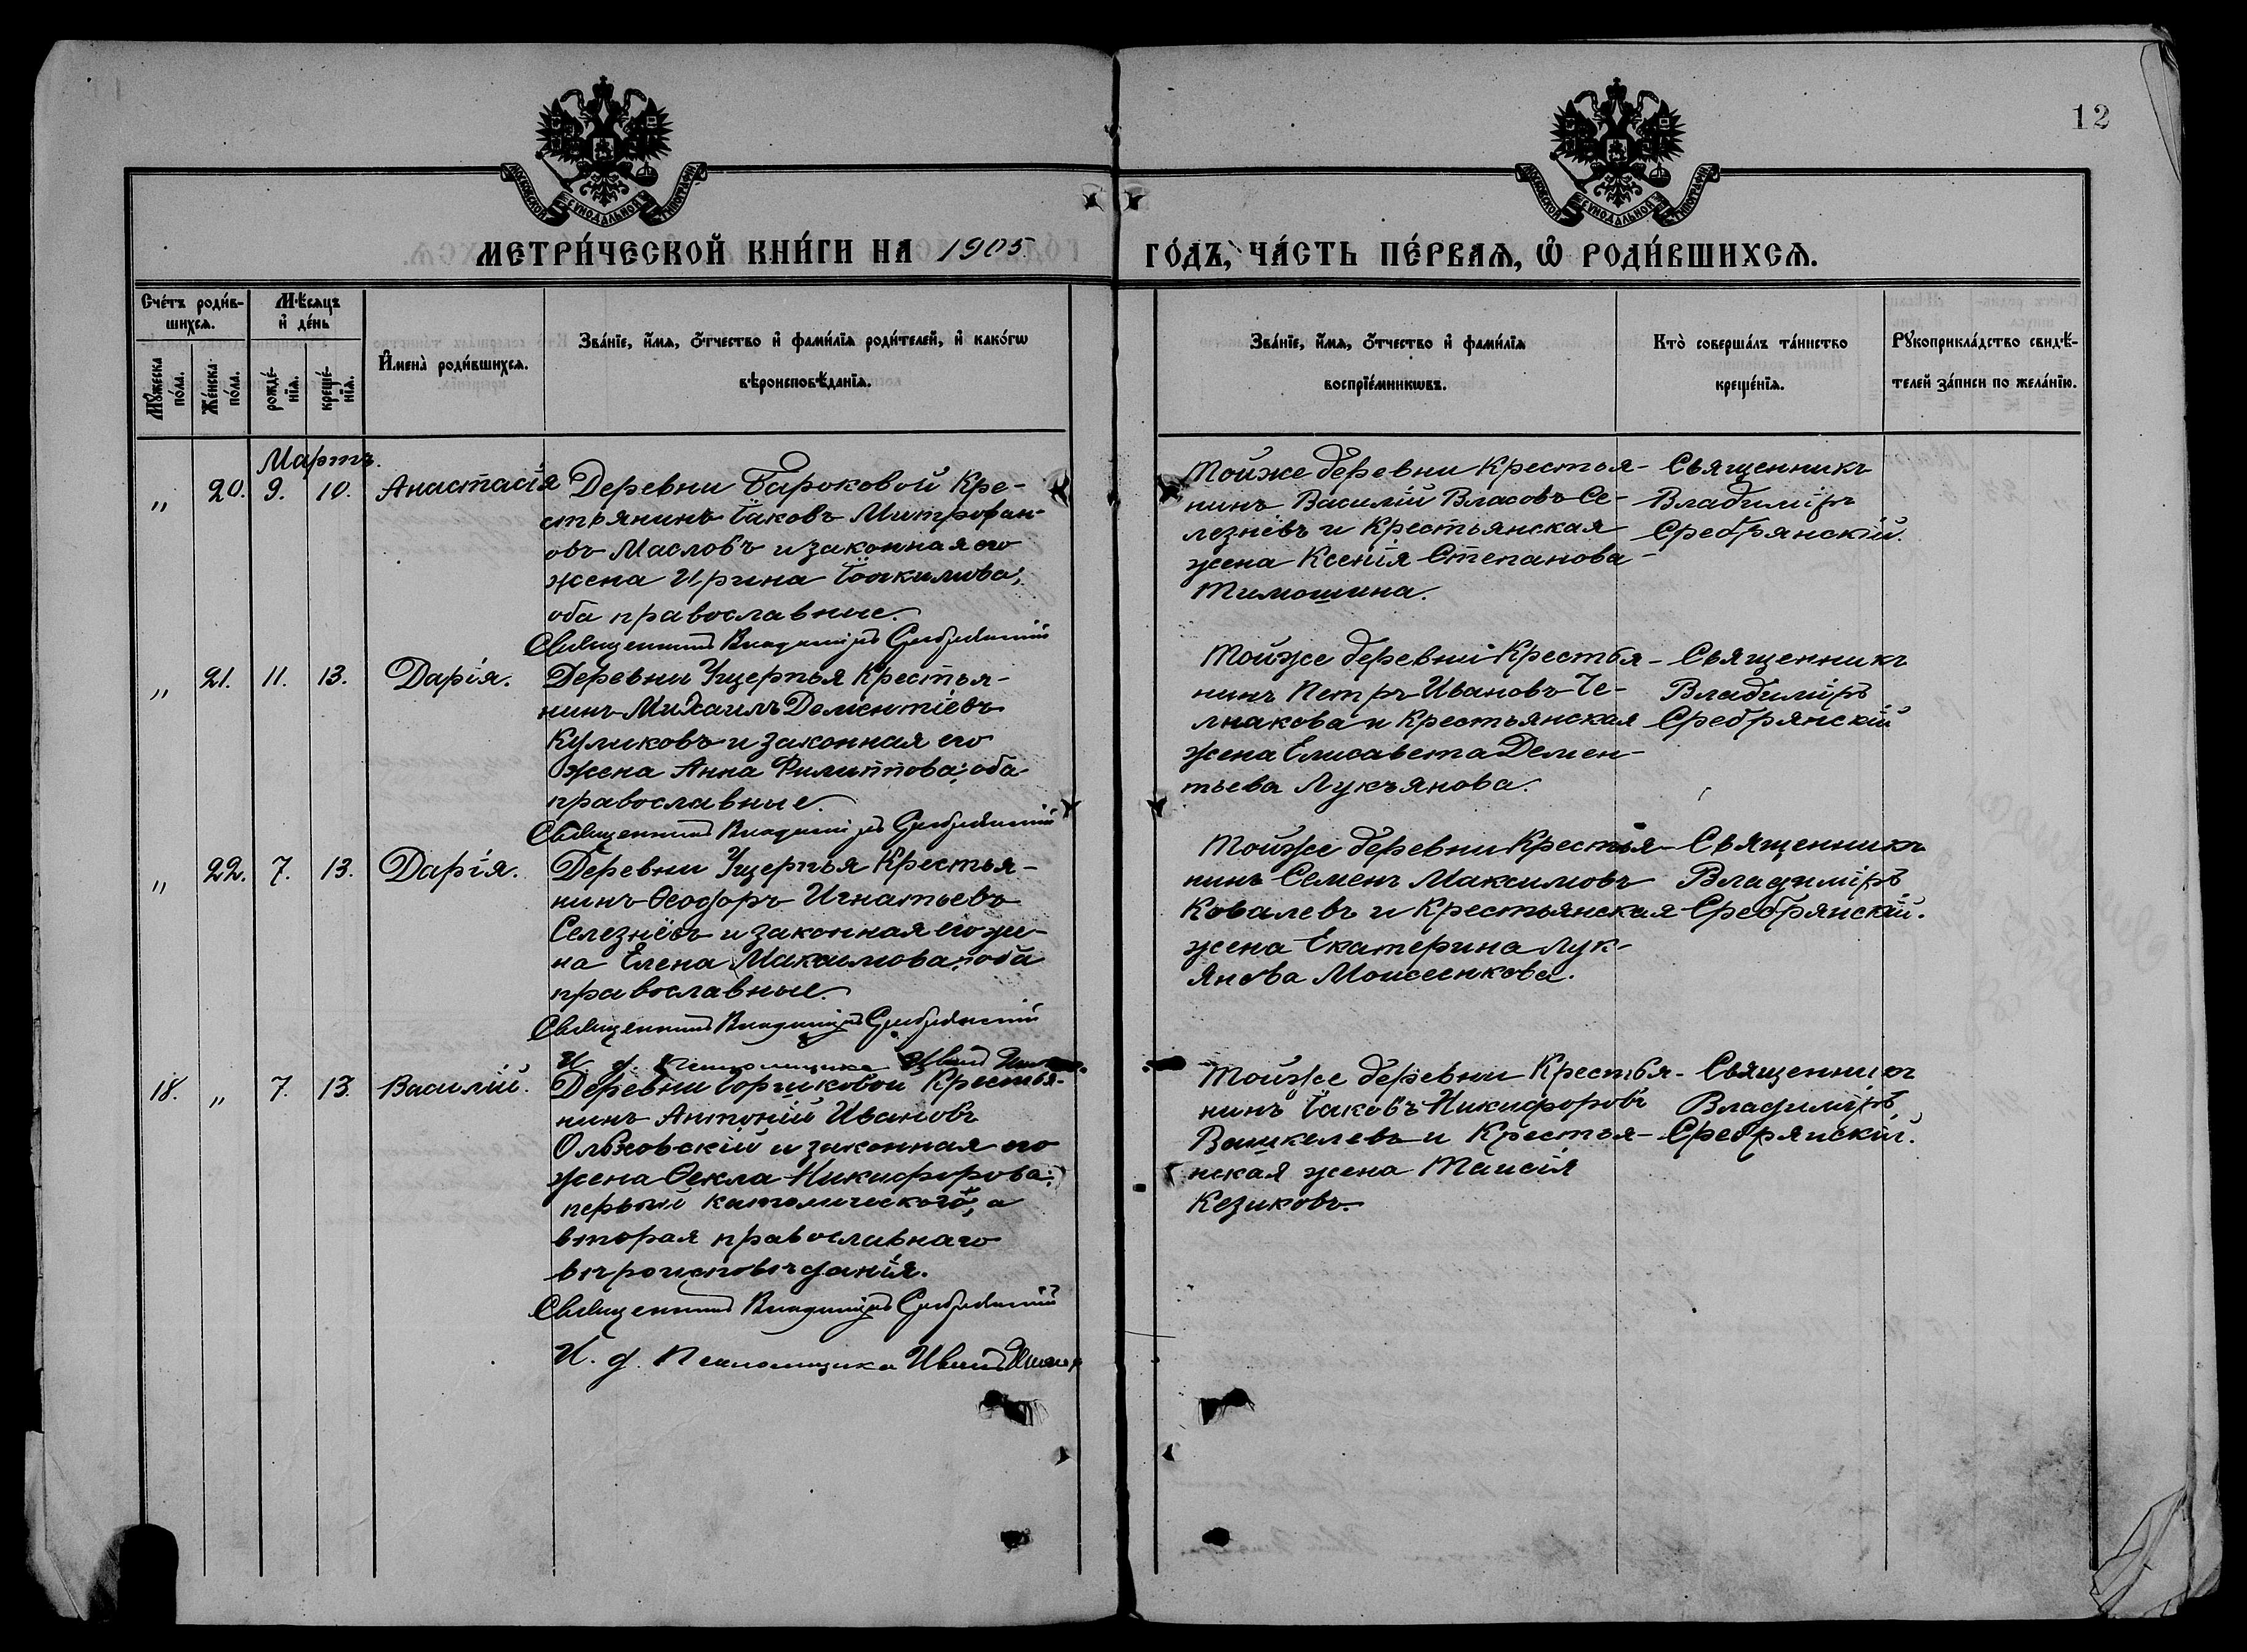 12
МОСКОВСКОЙ СѴНОДАЛЬНОЙ ТИПОГРАФІИ
МОСКОВСКОЙ СѴНОДАЛЬНОЙ ТИПОГРАФІИ
МЕТРИ́ЧЕСКОЙ КНИ́ГИ НА 1905
ГО́ДЪ, ЧА́СТЬ ПЕ́РВАѦ, Ѽ РОДИ́ВШИХСѦ.
Сче́тъ роди́в-
шихсѧ.
Мꙋ́жеска по́ла.
Же́нска по́ла.
Мѣ́сѧцъ
и҆ де́нь
рожде́-
нїѧ.
креще́-
нїѧ.
И҆мена̀ роди́вшихсѧ.
Зва́нїе, и҆́мѧ, ѻ҆́тчество и҆ фами́лїѧ роди́телей, и҆ како́гѡ
вѣроисповѣ́данїѧ.
Зва́нїе, и҆́мѧ, ѻ҆́тчество и҆ фами́лїѧ
воспрїе́мникѡвъ.
Кто̀ соверша́лъ та́инство
креще́нїѧ.
Рꙋкоприкла́дство свидѣ́-
телей за́писи по жела́нїю.
Мартъ.
" 20. 9. 10. Анастасія
Деревни Кре-
стьянинъ Іаковъ Митрофан-
овъ Масловъ и законная его
жена Ирина Іоакимова;
оба православные.
Священникъ Владиміръ Сребрянскій
Тойже деревни Крестья-
нинъ Василій Власовъ Се-
лезнёвъ и Крестьянская
жена Ксенія Степанова
Тимошина.
Священникъ
Владиміръ
Сребрянскій.
" 21. 11. 13. Дарія.
Деревни Ущерпья Крестья-
нинъ Михаилъ Дементіевъ
Куликовъ и законная его
жена Анна Филиппова; оба
православные.
Священникъ Владиміръ Сребрянскій
Тойже деревни Крестья-
нинъ Петръ Ивановъ
и Крестьянская
жена Елисавета Демен-
тьева Лукъянова.
Священникъ
Владиміръ
Сребрянскій
" 22. 7. 13. Дарія.
Деревни Ущерпья Крестья-
нинъ Ѳеодоръ Игнатьевъ
Селезнёвъ и законная его же-
на Елена Максимова; оба
православные.
Священникъ Владиміръ Сребрянскій
И. д. Псаломщика Иванъ
Тойже деревни Крестья-
нинъ Семенъ Максимовъ
Ковалевъ и Крестьянская
жена Екатерина Лук-
янова Моисеенкова.
Священникъ
Владиміръ
Сребрянскій.
18. " 7. 13. Василій.
Деревни Крестья-
нинъ Антоній Ивановъ
Ольховскій и законная его
жена Ѳекла Никифорова;
первый католическаго, а
вторая православнаго
вѣроисповѣданія.
Священникъ Владиміръ Сребрянскій
И. д. Псаломщика Иванъ
Тойже деревни Крестья-
нинъ Іаковъ Никифоровъ
и Крестья-
нская жена Таисія
Кезиковъ.
Священникъ
Владиміръ
Сребрянскій.